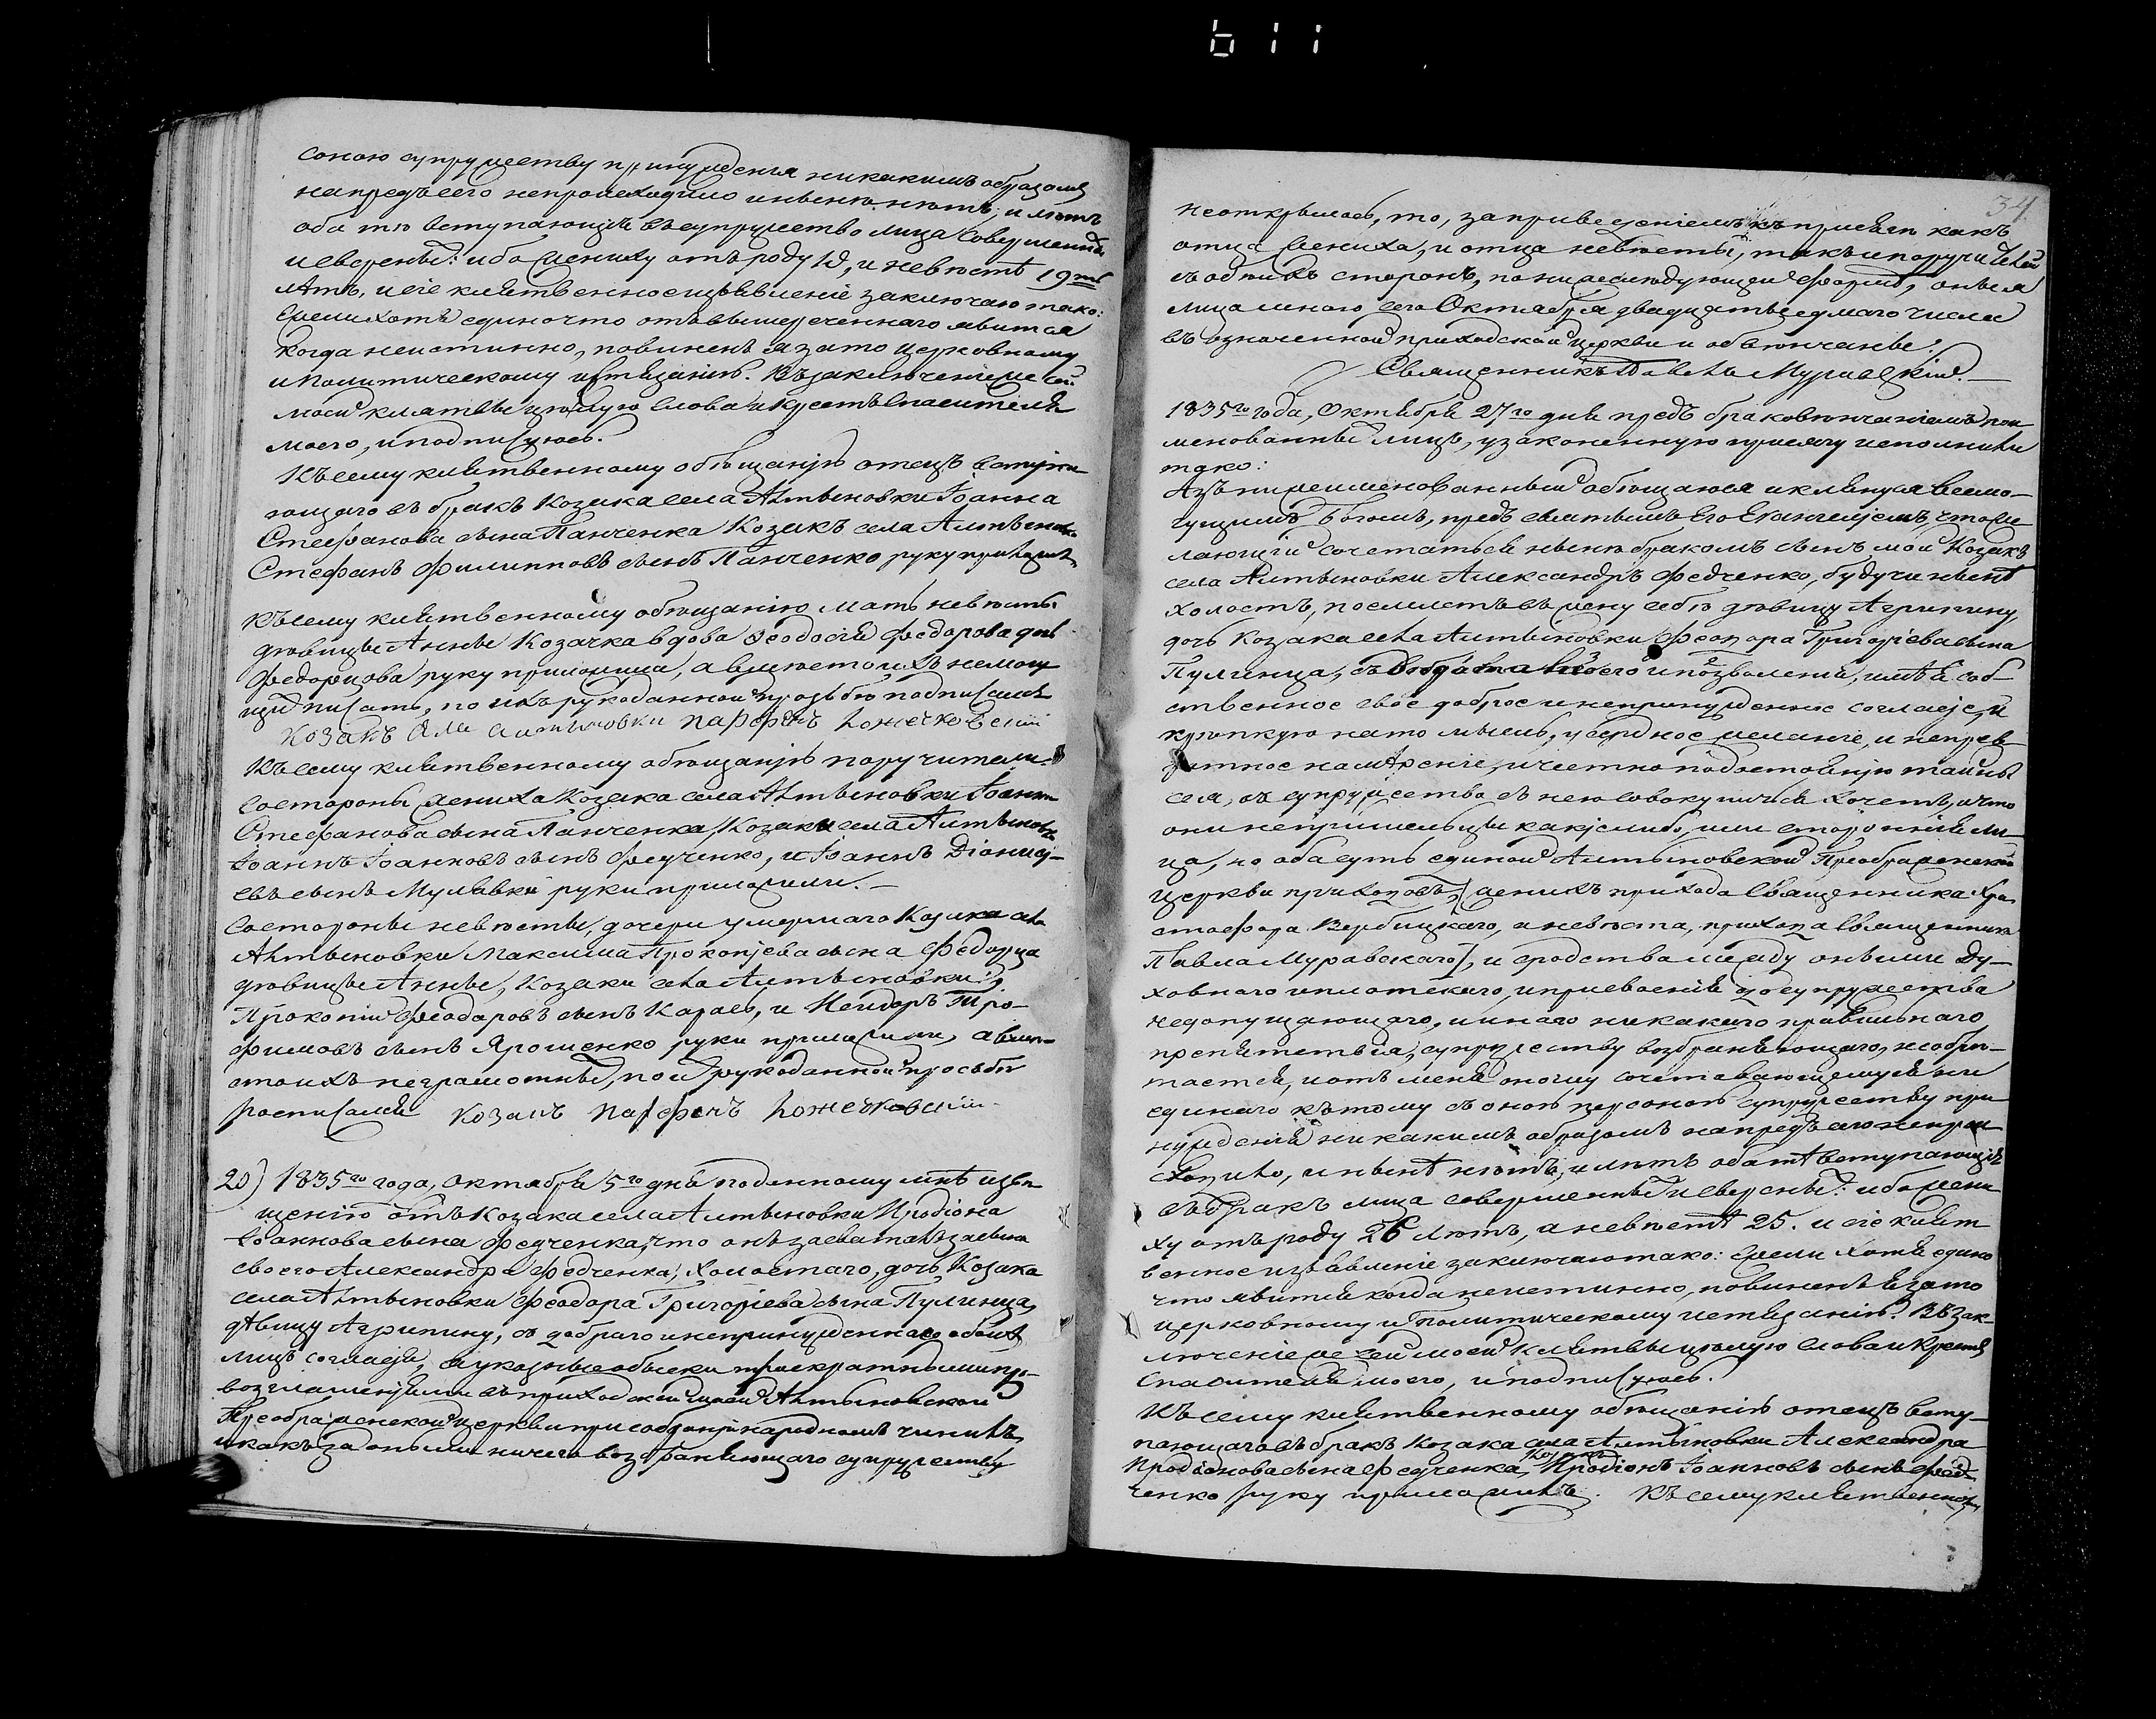 611
соною супружеству принужденія никакимъ образомъ
напредъ сего непроисходило и нынѣ нѣтъ, и лѣтъ
оба тѣ вступающія въ супружество лица совершенны
и сверсны: ибо жениху отъ роду 18, и невѣстѣ 19ть
лѣтъ, и сіе клятвенное изъявленіе заключаю тако:
Ежели хотя едино что отъ вышереченнаго явится
когда неистинно, повиненъ я за то церковному
и политическому истязанію. Въ заключеніе же сей
моей клятвы цѣлую слова и крестъ Спасителя
моего, и подписуюсь.
Къ сему клятвенному обѣщанію отецъ вступа-
ющаго въ бракъ Козака села Алтыновки Іоанна
Стефанова сына Панченка Козакъ села Алтыновки
Стефанъ Филипповъ сынъ Панченко руку приложилъ
Къ сему клятвенному обѣщанію мать невѣсты
дѣвицы Анны Козачка вдова Феодосія Федорова дочь
Федорцова руку приложила, а вмѣсто ихъ немогу
щихъ писать, по ихъ рукоданной прозьбѣ подписался
козакъ села Алтыновки Парфенъ
Къ сему клятвенному обѣщанію поручители
со стороны жениха Козака села Алтыновки Іоанна
Стефанова сына Панченка Козаки села Алтыновки
Іоаннъ Іоанновъ сынъ Федченко, и Іоаннъ Діонисі-
евъ сынъ Мулявка руки приложили.—
Со стороны невѣсты, дочери умершаго Козака села
Алтыновки Максима Прокопіева сына Федорца
дѣвицы Анны, Козаки села Алтыновки:
Прокопій Феодоровъ сынъ Карась, и Несторъ Тро-
фимовъ сынъ Ярошенко руки приложили, а вмѣ-
сто ихъ неграмотныхъ, по ихъ рукоданной просьбѣ
росписался козакъ Парфенъ
20) 1835го года, Октября 5го дня по данному мнѣ извѣ
щенію отъ Козака села Алтыновки Иродіона
Іоаннова сына Федченка, что онъ засваталъ за сына
своего Александра Федченка, холостаго, дочь Козака
села Алтыновки Феодора Григоріева сына Пулинца,
дѣвицу Агрипину, съ добраго и непринужденнаго обоихъ
лицъ согласія, я указные обыски троекратными
возглашеніями въ приходской моей Алтыновской
Преображенской церкви при собраніи народномъ чинилъ,
и какъ за оными ничего возбраняющаго супружеству
34
неоткрылось, то, за приведеніемъ къ присягѣ какъ
отца жениха, и отца невѣсты, такъ и поручителей
съ обѣихъ сторонъ, по нижеслѣдующей формѣ, оныя
лица мною сего Октября двадцать седмаго числа
въ означенной приходской церкви и обвѣнчаны.
Священникъ Павелъ Муравскій.—
1835го года, Октября 27го дня предъ браковѣнчаніемъ пои
менованныхъ лицъ, узаконенную присягу исполнили
тако:
Азъ нижеименованный обѣщаюся и клянуся всемо-
гущимъ Богомъ, предъ святымъ Его Евангеліемъ, что же
лающій сочетаться нынѣ бракомъ сынъ мой Козакъ
села Алтыновки Александръ Федченко, будучи нынѣ
холостъ, поемлетъ въ жену себѣ дѣвицу Агрипину,
дочь Козака села Алтыновки Феодора Григоріева сына
Пулинца, съ моего и позволенія, имѣя соб-
ственное свое доброе и непринужденное согласіе, и
крѣпкую на то мысль, усердное желаніе, и непрев-
ратное намѣреніе, и честно по достоянію тайны
сея, въ супружество съ нею совокупитися хочетъ, и что
они непришельцы какіе либо, или сторонніи ли-
ца, но оба суть единой Алтыновской Преображенской
церкви приходовъ, [женихъ прихода священника Хри
стофора Вербицкаго, а невѣста, прихода священника
Павла Муравскаго], и сродства между оными ду-
ховнаго и плотскаго, и присвоенія до супружества
недопущающаго, и инаго никакого правильнаго
препятствія, супружеству возбраняющаго, необрѣ-
тается, и отъ мене оному сочетавающемуся ни
единаго къ тому съ оною персоною супружеству при
нужденія никакимъ образомъ напредъ сего непроис
ходило, и нынѣ нѣтъ, и лѣтъ оба тѣ вступающія
въ бракъ лица совершенны и сверсны: ибо жени
ху отъ роду 26 лѣтъ, а невѣстѣ 25. и сіе клят
венное изъявленіе заключаю тако: Ежели хотя едино
что явится когда неистинно, повиненъ я за то
церковному и политическому истязанію. Въ зак-
люченіе же сей моей клятвы цѣлую слова и крестъ
Спасителя моего, и подписуюсь.
Къ сему клятвенному обѣщанію отецъ всту-
пающаго въ бракъ Козака села Алтыновки Александра
Иродіонова сына Федченка, Козакъ Иродіонъ Іоанновъ сынъ Фед-
ченко руку приложилъ. Къ сему клятвенному